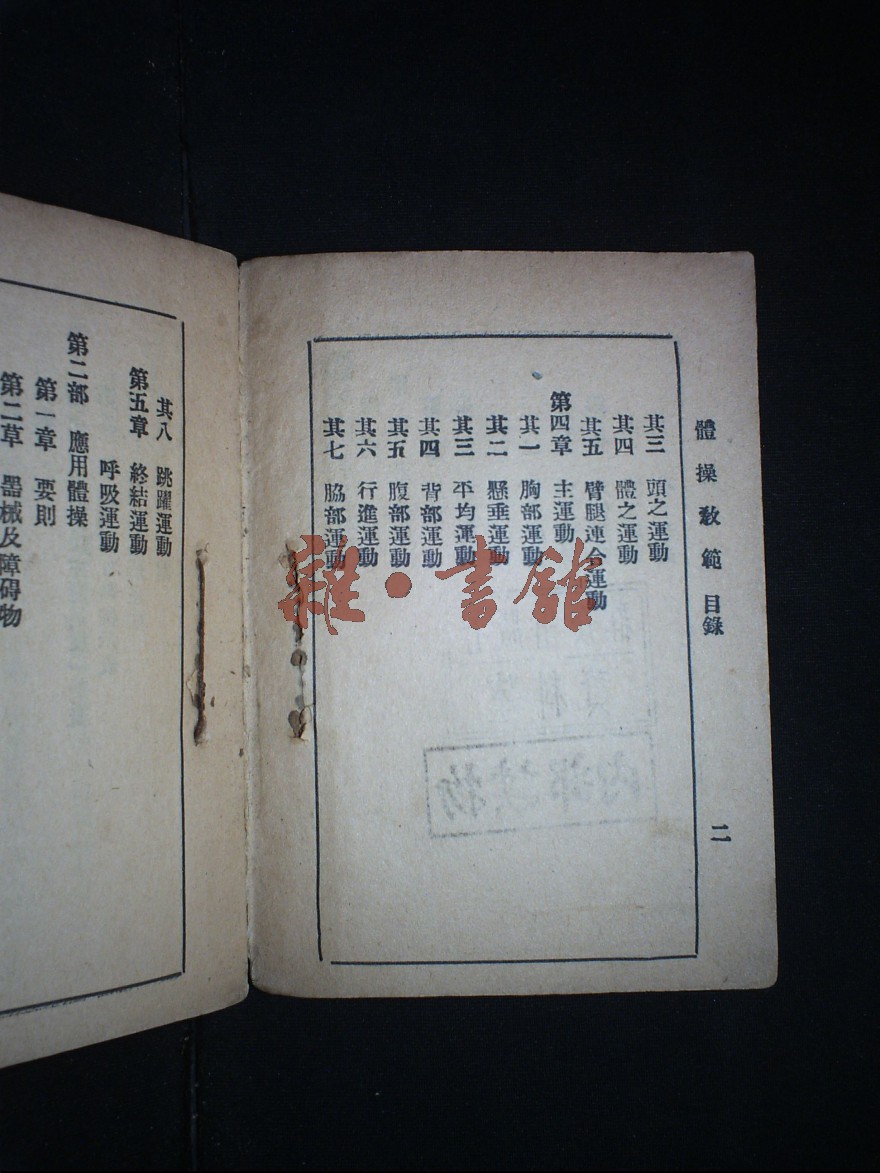 體操教範 目錄
二
其三 頭之運動
其四 體之運動
其五 臂腿連合運動
第四章 主運動
其一 胸部運動
其二 懸垂運動
其三 平均運動
其四 背部運動
其五 腹部運動
其六 行進運動
其七 脇部運動
其八 跳躍運動
第五章 終結運動
呼吸運動
第二部 應用體操
第一章 要則
第二草 器械及障碍物
雜·書館
內部讀物